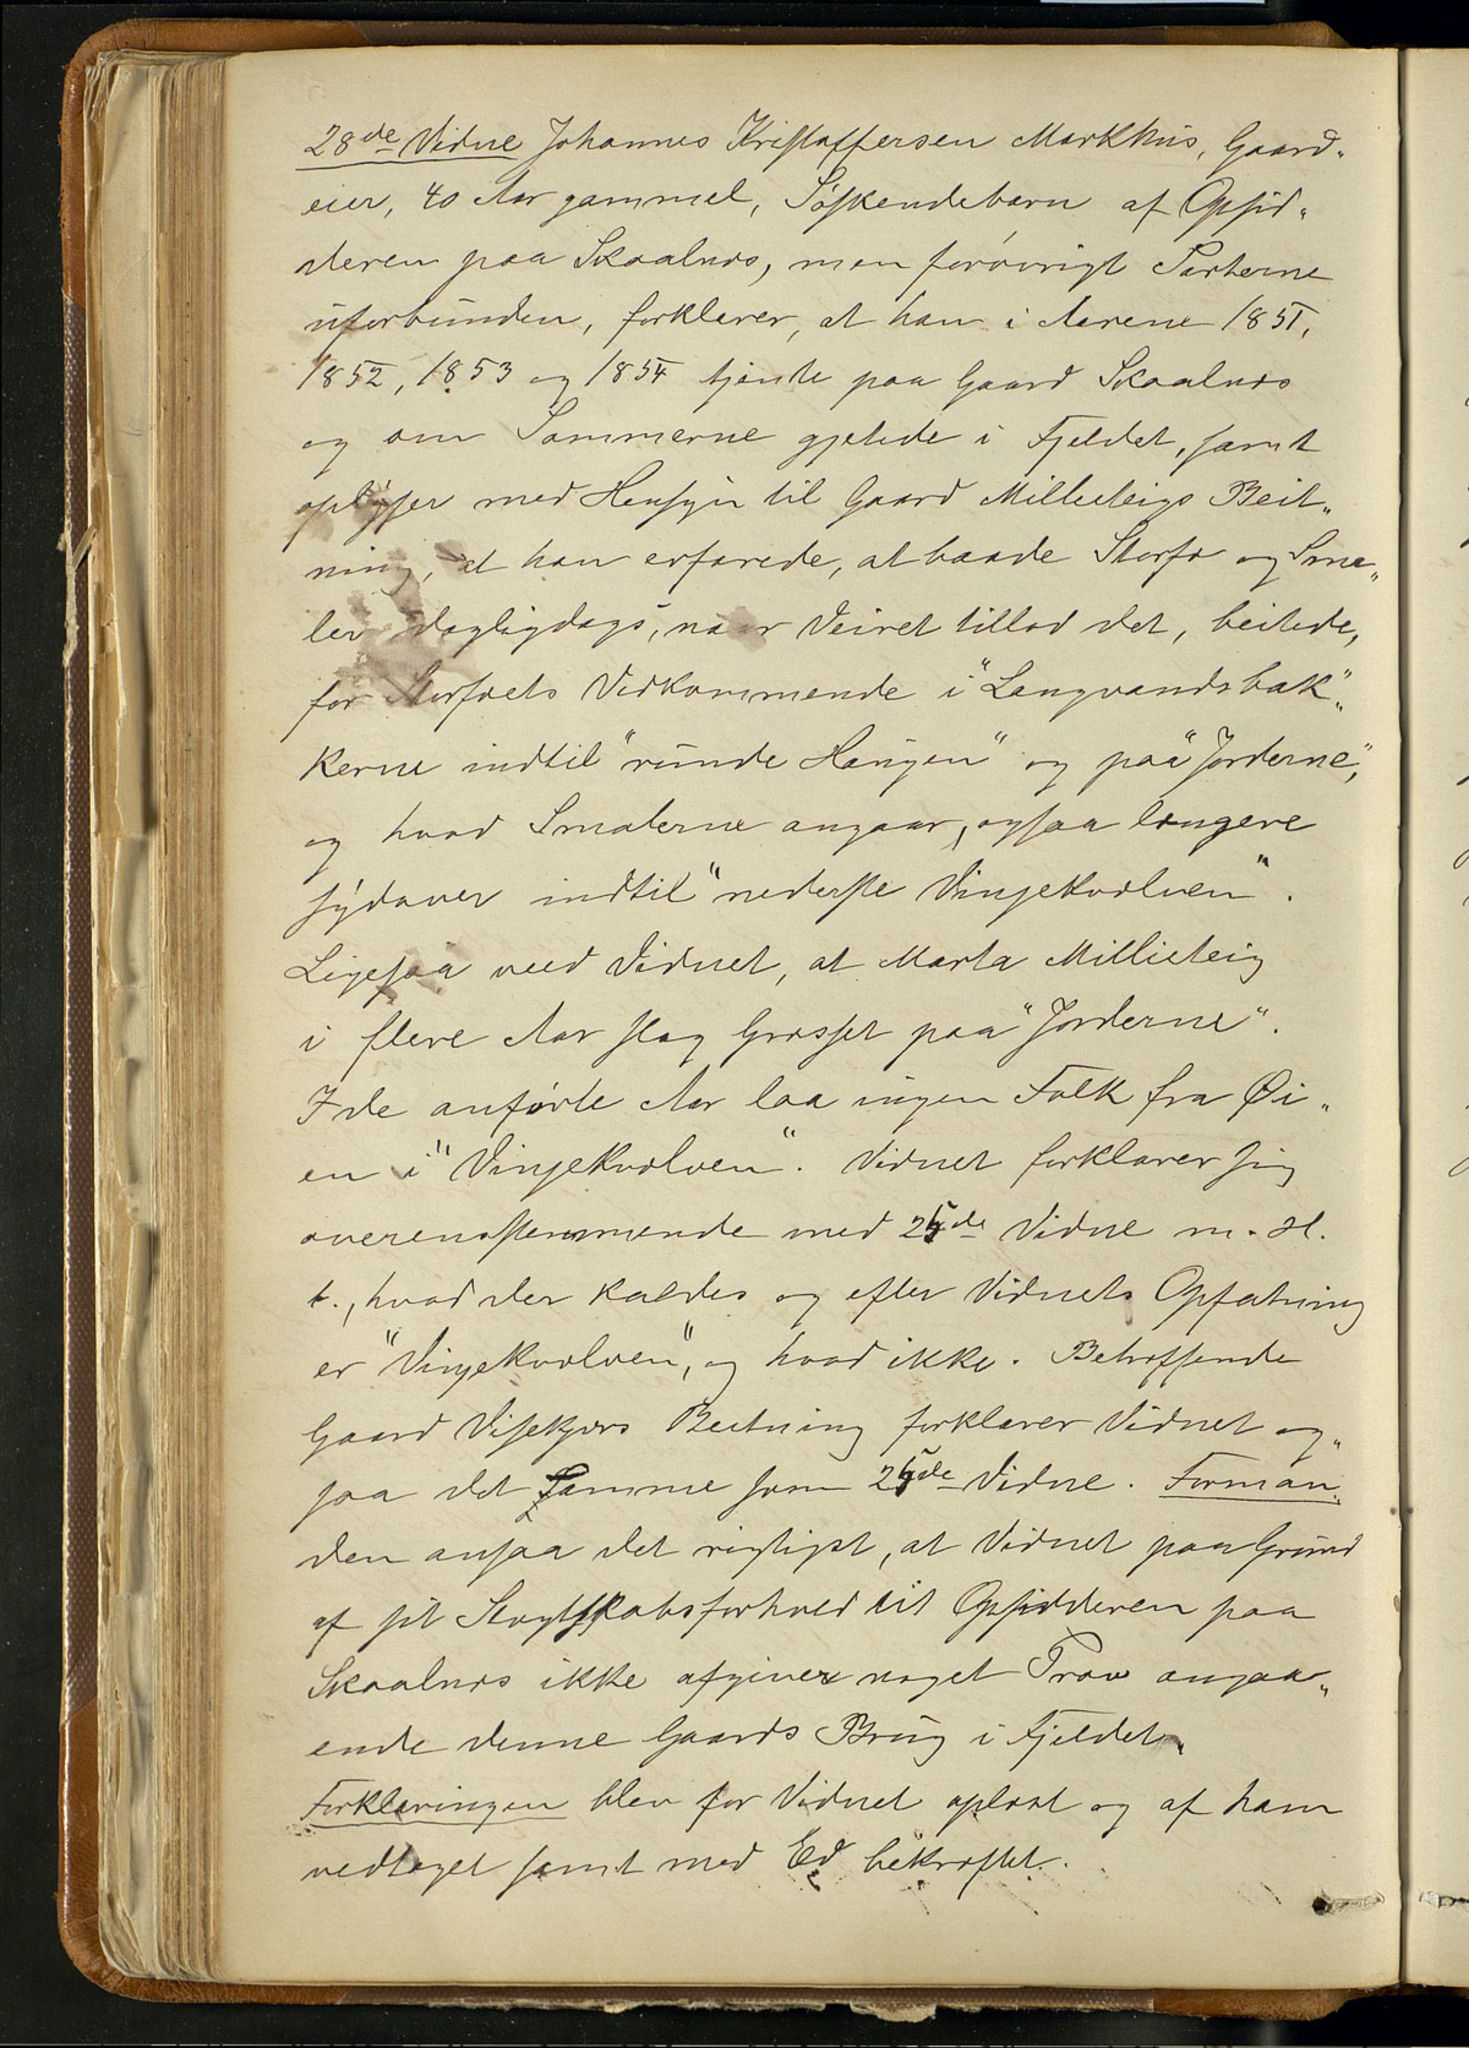 28de Vidne Johannes Kristoffersen Markhus, Gaard„
eier, 40 Aar gammel, Söskendebarn af Opsid„
deren paa Skaalnæs, men forövrigt Parterne
uforbunden, forklarer, at han i Aarene 1851,
1852, 1853 og 1854 tjente paa Gaard Skaalnæs
og om Sommerne gjetede i Fjeldet, samt
oplyser med Hensyn til Gaard Millieteigs Beit„
ning, at han erfarede, at baade Storfæ og Sma„
ler dagligdags, naar Veiret tillod det, beitede,
for Storfæets Vedkommende i "Langvandsbak"„
kerne indtil "runde Haugen" og paa "Jorderne",
og hvad Smalerne angaar, ogsaa længere
sydover indtil "nederste Vinjekvolven".
Ligesaa veed Vidnet, at Marta Millieteig
i flere Aar slog Græsset paa "Jorderne".
I de anförte Aar laa ingen Folk fra Øi„
en i "Vinjekvolven". Vidnet forklarer sig
overensstemmende med 25de Vidne m. H.
t., hvad der kaldes og efter Vidnets Opfatning
er "Vinjekvolven", og hvad ikke. Betræffende
Gaard Visekjærs Beitning forklarer Vidnet og„
saa det samme som 25de Vidne. Forman„
den ansaa det rigtigst, at Vidnet paa Grund
af sit Slegtskabsforhold til Opsidderen paa
Skaalnæs ikke afgiver noget Prov angaa„
ende denne Gaards Brug i Fjeldet.
Forklaringen blev for Vidnet oplæst og af ham
vedtaget samt med Ed bekræftet.